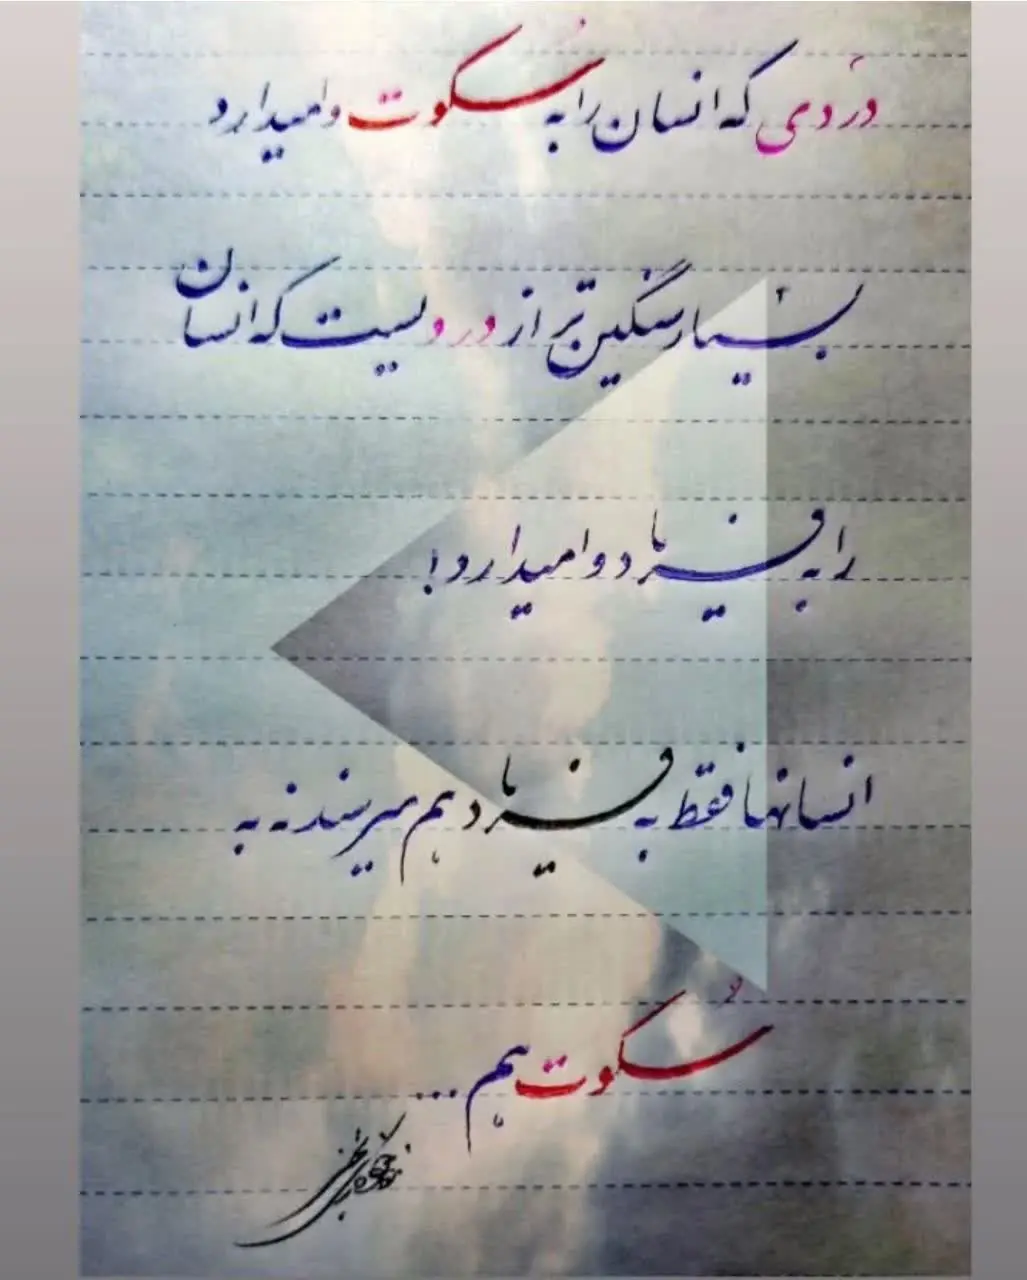 دردی که انسان را به سکوت وامیدارد
بسیار سنگین تر از دردیست که انسان
را به فریاد وامیدارد!
انسانها فقط به فریاد هم میرسند نه به
سکوت هم ...